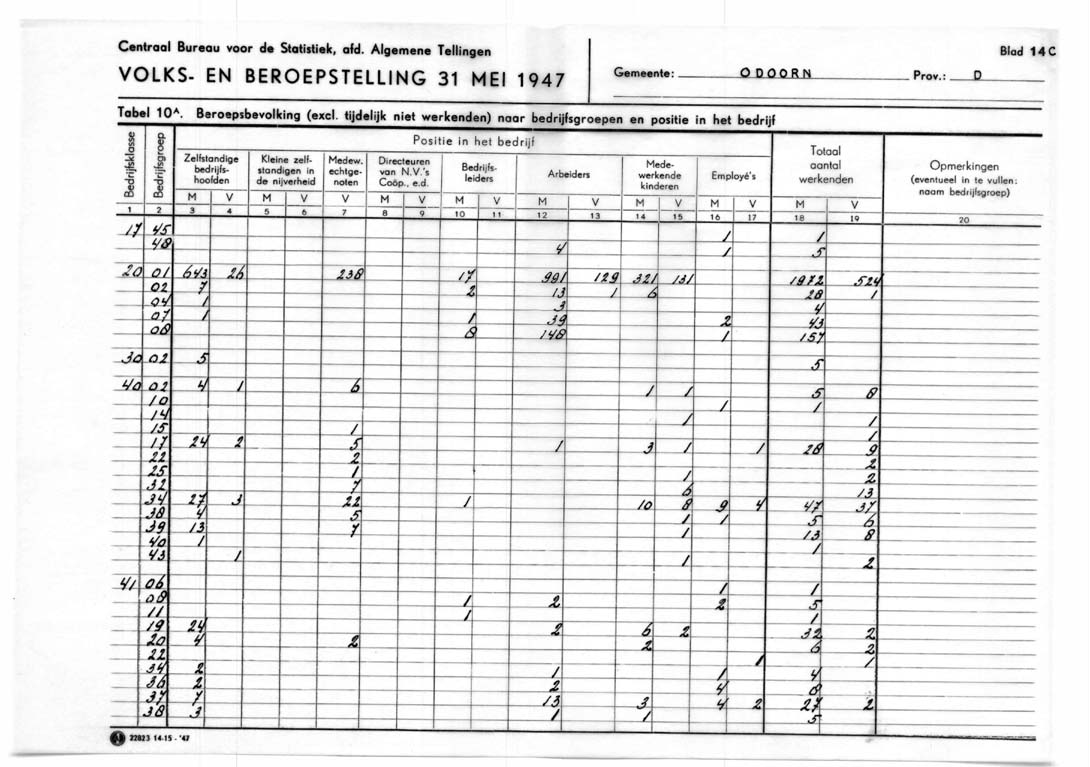 Centraal Bureau voor de Statistiek, afd. Algemene Tellingen
Blad 14C
VOLKS- EN BEROEPSTELLING 31 MEI 1947
Gemeente: ODOORN Prov.: D
Tabel 10A. Beroepsbevolking (excl. tijdelijk niet werkenden) naar bedrijfsgroepen en positie in het bedrijf
Bedrijfsklasse
Bedrijfsgroep
Positie in het bedrijf
Zelfstandige bedrijfs-hoofden
Kleine zelf-standigen in de nijverheid
Medew. echtge-noten
Directeuren van N.V.'s Coöp., e.d.
Bedrijfs-leiders
Arbeiders
Mede-werkende kinderen
Employé's
Totaal aantal werkenden
Opmerkingen (eventueel in te vullen: naam bedrijfsgroep)
M V M V V M V M V M V M V M V M V
1 2 3 4 5 6 7 8 9 10 11 12 13 14 15 16 17 18 19 20
17 45 1 1
48 4 1 5
20 01 643 26 238 17 991 129 321 131 1972 524
02 7 2 13 1 6 28 1
04 1 3 4
07 1 1 39 2 43
08 8 148 1 157
30 02 5 5
40 02 4 1 6 1 1 5 8
10 1 1
14 1 1
15 1 1
17 24 2 5 1 3 1 1 28 9
22 2 2
25 1 1 2
32 7 6 13
34 27 3 22 1 10 8 9 4 47 37
38 4 5 1 1 5 6
39 13 7 1 13 8
40 1 1
43 1 1 2
41 06 1 1
08 1 2 2 5
11 1 1
19 24 2 6 2 32 2
20 4 2 2 6 2
22 1 1
34 2 1 1 4
36 2 2 4 8
37 7 13 3 4 2 27 2
38 3 1 1 5
22823 14-15 - '47